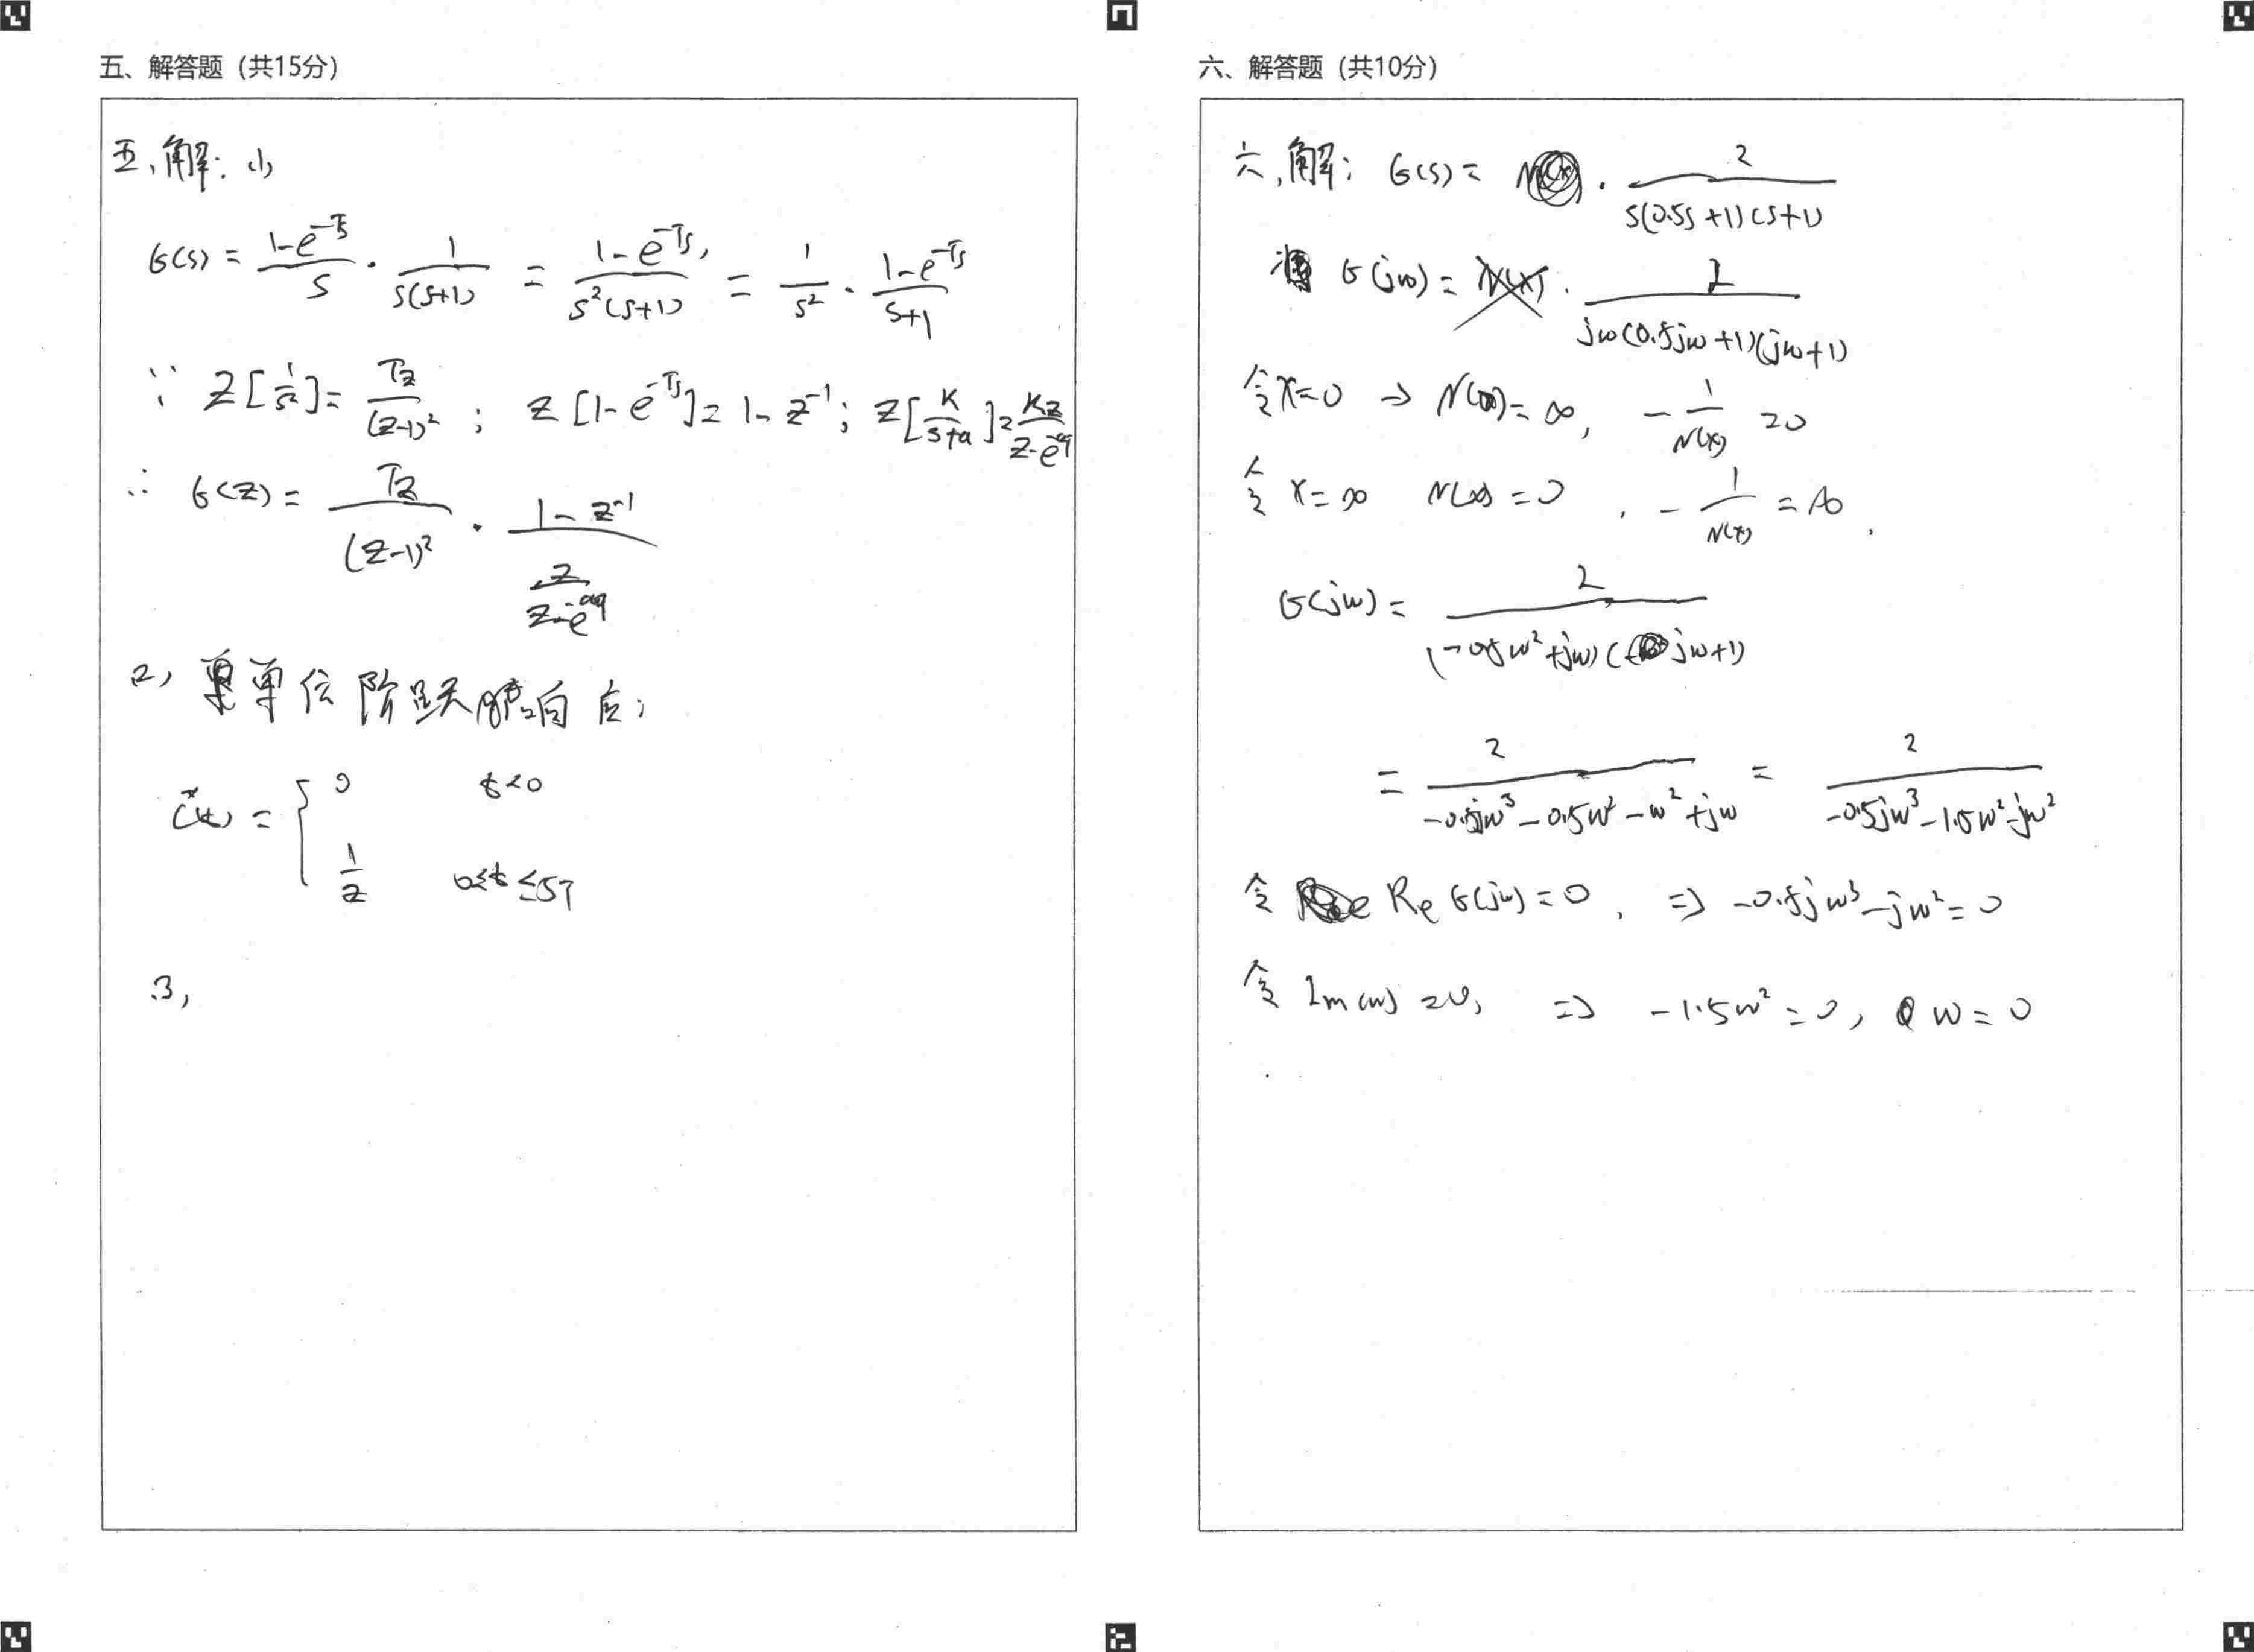 五、解答题（共15分）
五、解：(1)
G(s) = \frac{1-e^{-Ts}}{s} · \frac{1}{s(s+1)} = \frac{1-e^{-Ts}}{s^2(s+1)} = \frac{1}{s^2} · \frac{1-e^{-Ts}}{s+1}
∵ Z[\frac{1}{s^2}] = \frac{Tz}{(z-1)^2} ; Z[1-e^{-Ts}] = 1-z^{-1} ; Z[\frac{K}{s+a}] = \frac{Kz}{z-e^{-aT}}
∴ G(z) = \frac{Tz}{(z-1)^2} · \frac{1-z^{-1}}{\frac{z}{z-e^{-aT}}}
2, 单位阶跃响应；
c^*(t) = { 0 t<0
\frac{1}{z} 0≤t≤5T
3,
六、解答题（共10分）
六、解：G(s) = · \frac{2}{s(0.5s+1)(s+1)}
G(jω) = · \frac{2}{jω(0.5jω+1)(jω+1)}
令x=0 → N(x)=∞, -\frac{1}{N(x)}=0
令x=∞ N(x)=0, -\frac{1}{N(x)}=∞.
G(jω) = \frac{2}{(-0.5ω^2+jω)(jω+1)}
= \frac{2}{-0.5jω^3-0.5ω^2-ω^2+jω} = \frac{2}{-0.5jω^3-1.5ω^2-jω^2}
令 Re G(jω)=0, ⇒ -0.5jω^3-jω^2=0
令 Im(ω)=0, ⇒ -1.5ω^2=0, ω=0